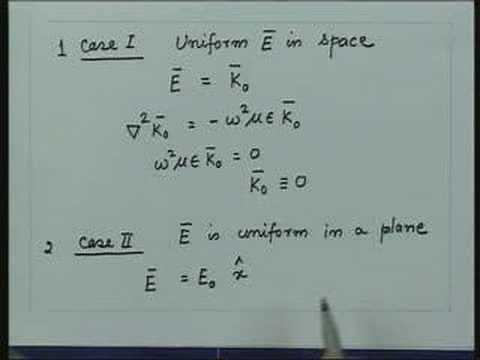 1 Case I Uniform E̅ in space
E̅ = K̅₀
∇²K̅₀ = -ω²μϵ K̅₀
ω²μϵ K̅₀ = 0
K̅₀ ≡ 0
2 Case II E̅ is uniform in a plane
E̅ = E₀ x̂